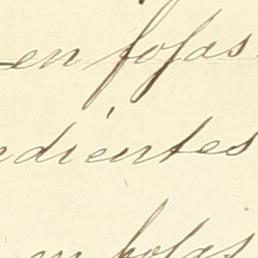 en fojas
dientes
en fojas